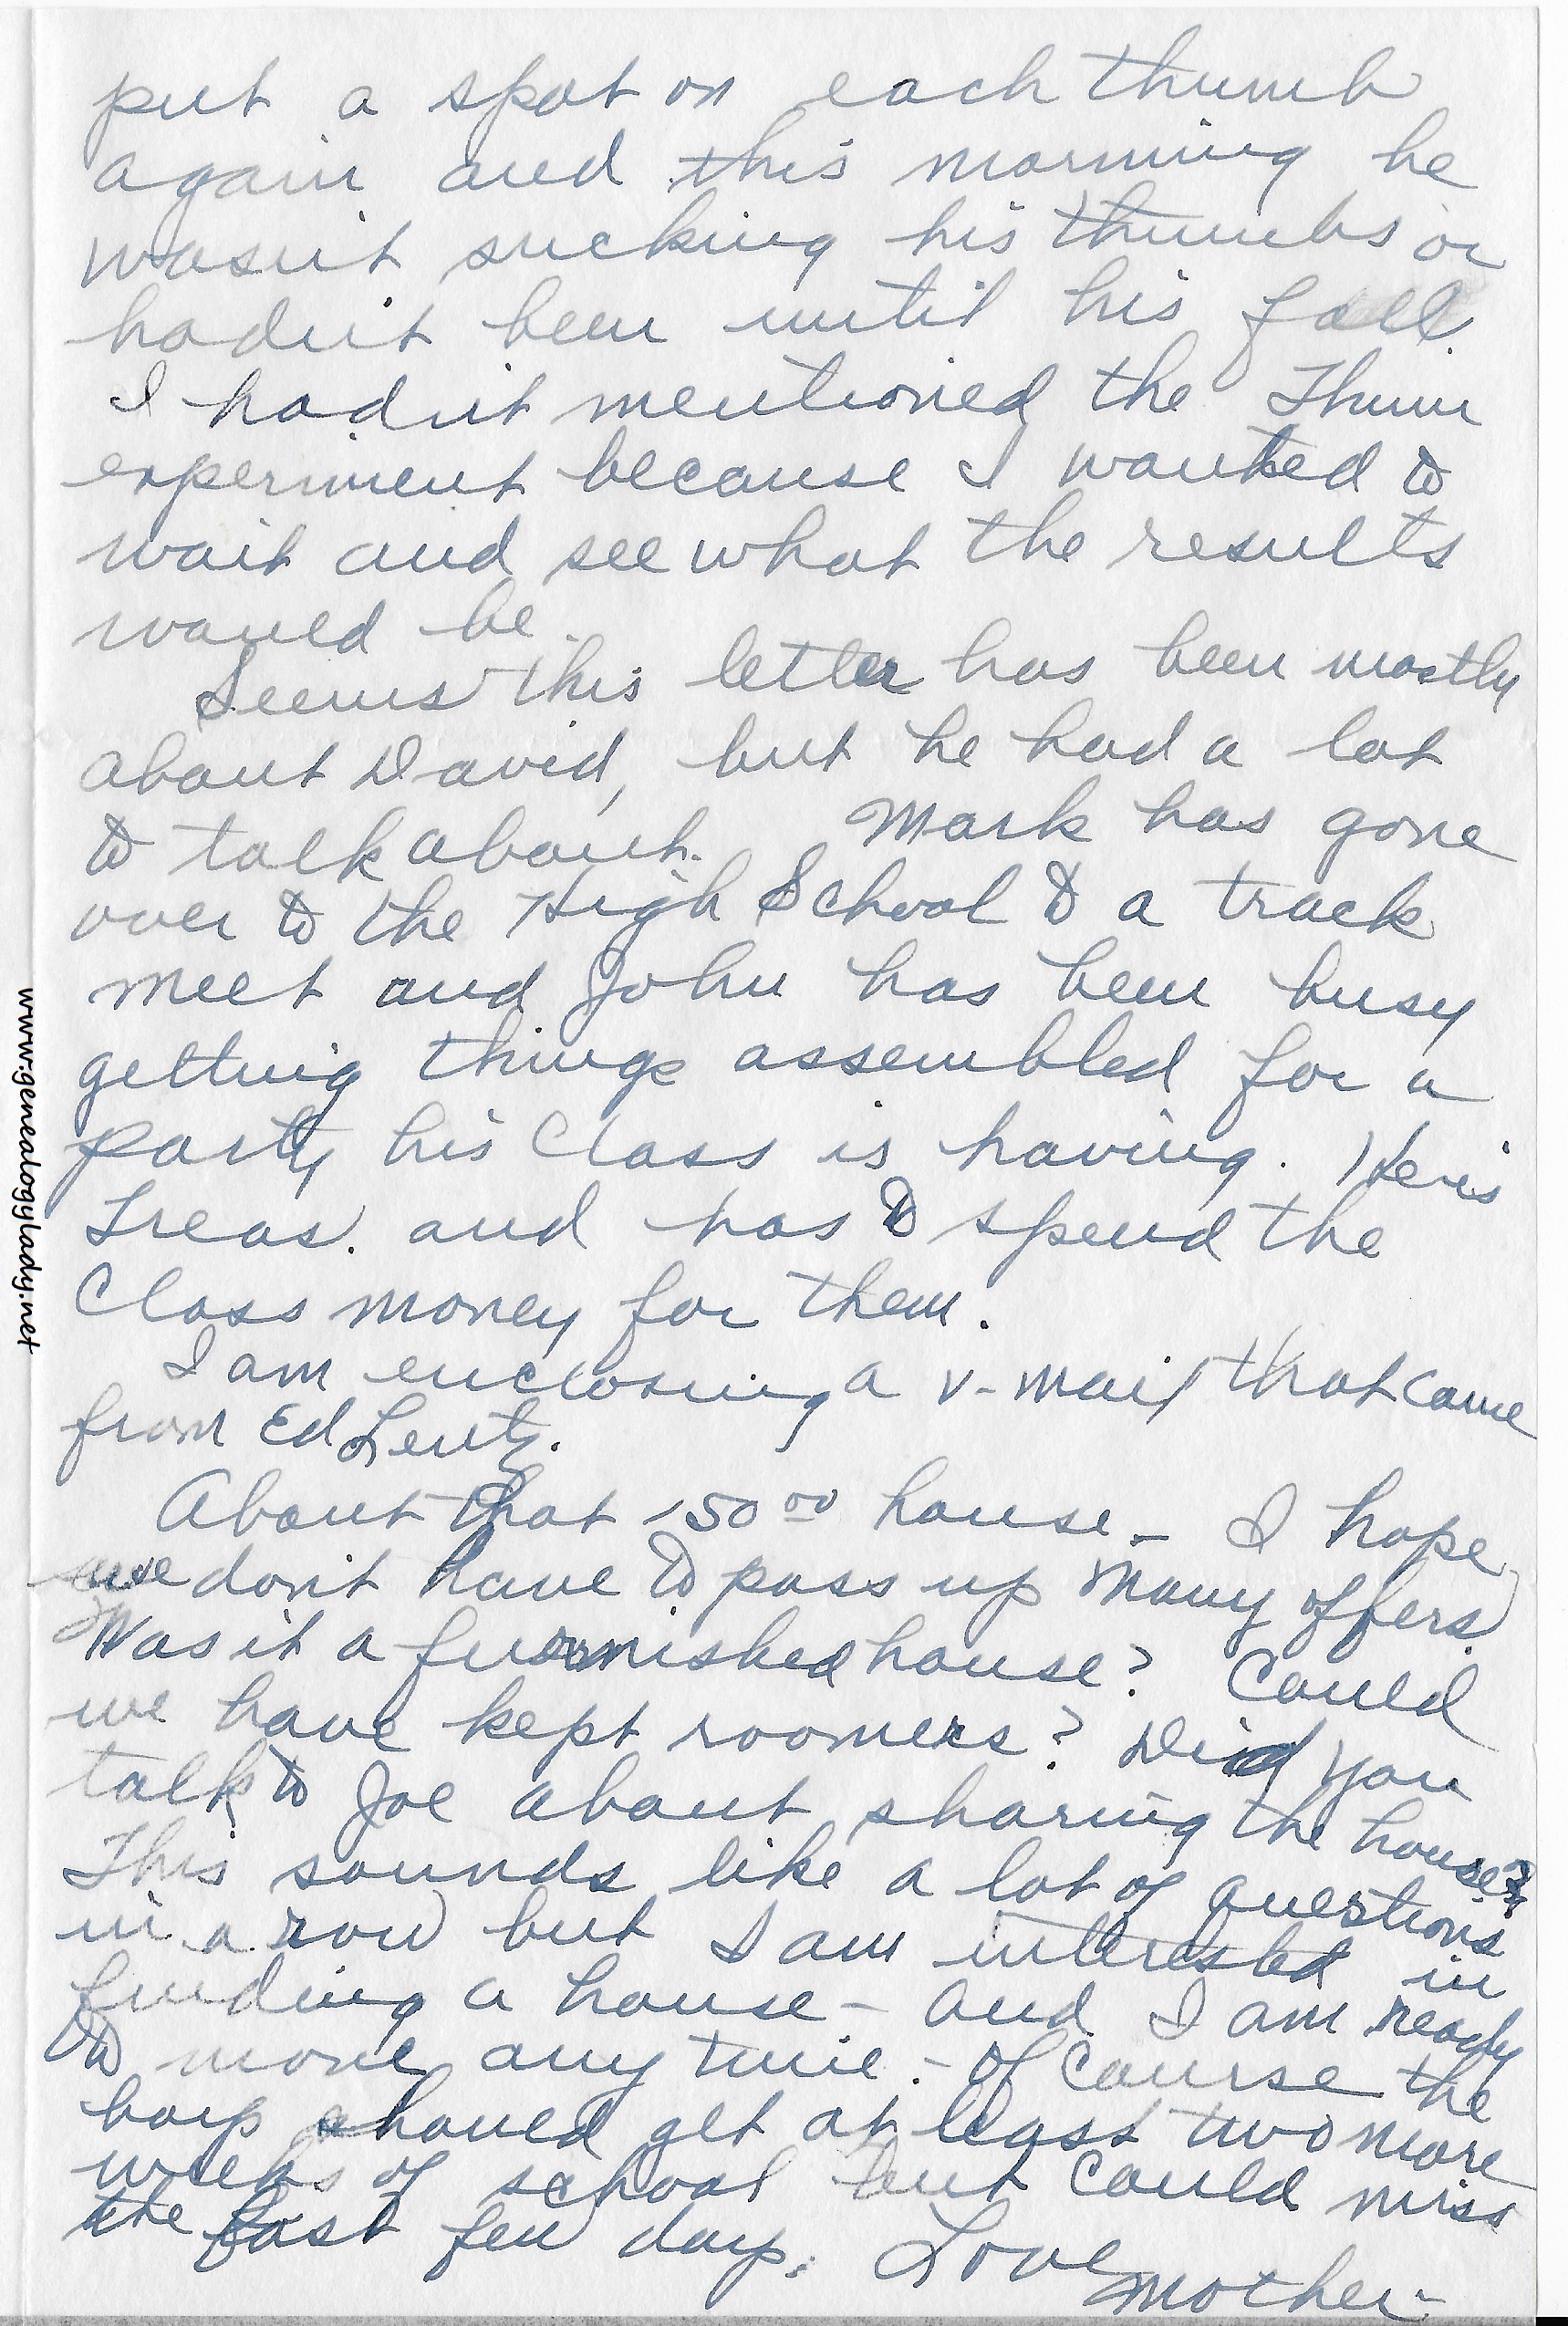 put a spot on each thumb
again and this morning he
wasn't sucking his thumbs or
hadn't been until his fall.
I hadn't mentioned the Thum
experiment because I wanted to
wait and see what the results
would be.
Seems this letter has been mostly
about David, but he had a lot
to talk about. Mark has gone
over to the High School to a track
meet and John has been busy
getting things assembled for a
party his Class is having. He is
Treas. and has to spend the
Class money for them.
I am enclosing a v-mail that came
from Ed Lentz.
About that 150 00 house – I hope
we don't have to pass up many offers.
Was it a furnished house? Could
we have kept roomers? Did you
talk to Joe about sharing the house?
This sounds like a lot of questions
in a row but I am interested in
finding a house – and I am ready
to move any time – Of Course the
boys should get at least two more
weeks of school but could miss
the last few days. Love
Mother-
www.genealogylady.net